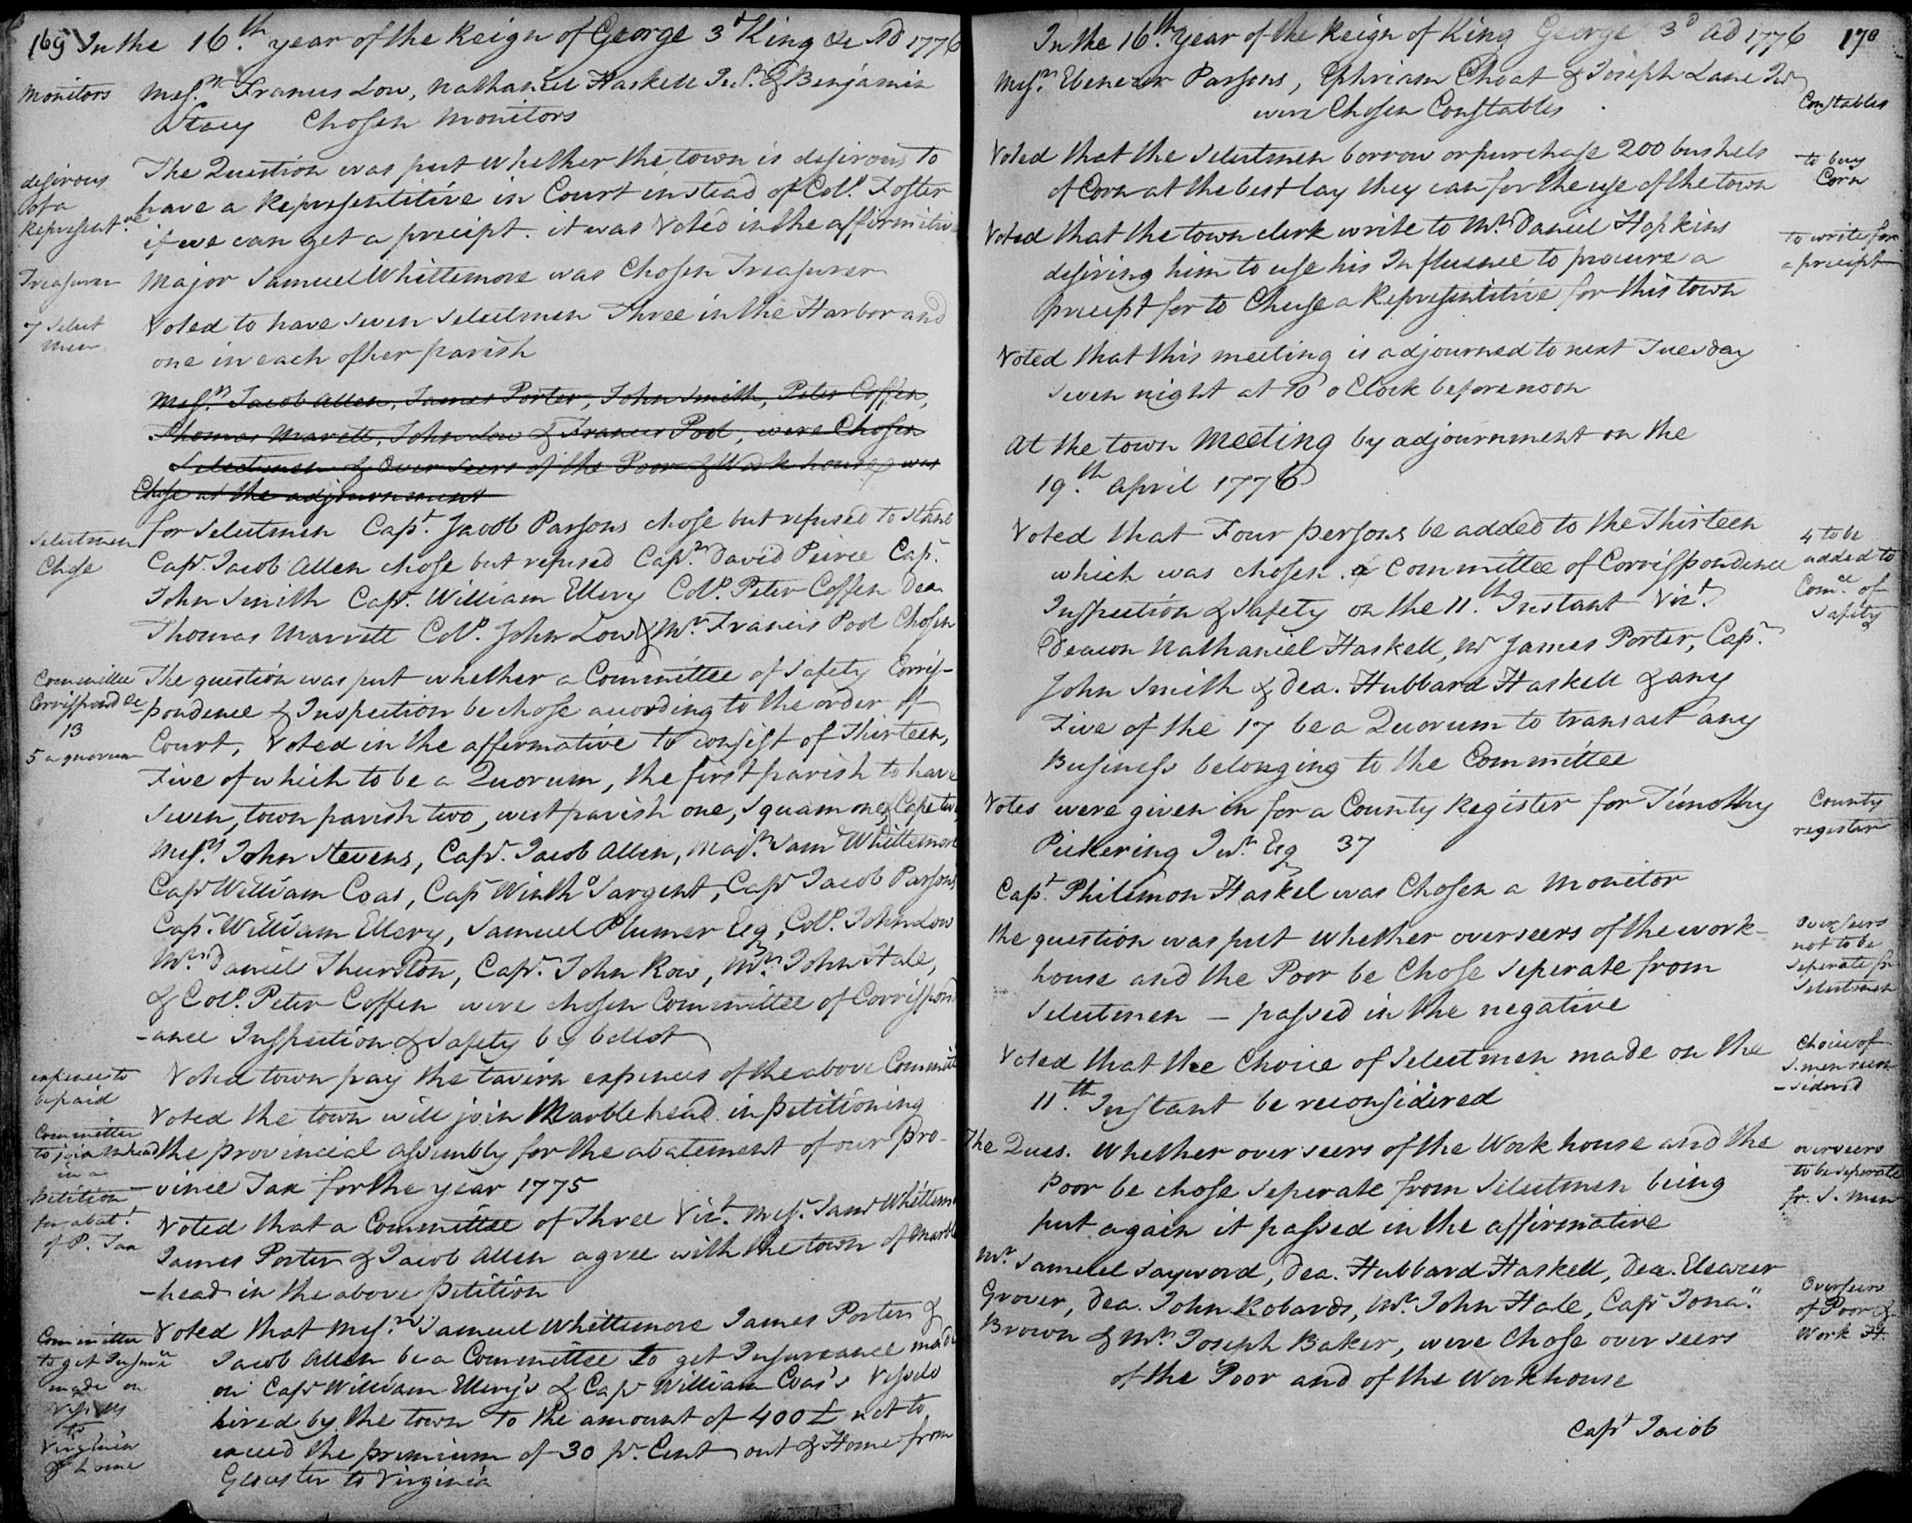 169 In the 16.th year of the Reign of George 3d King &c AD 1776
monitors
Mess.rs Francis Low, Nathaniel Haskell Jur. & Benjamin
Stacy Chosen Monitors
desirous
of a
Represent.ve
The Question was put Whether the town is desirous to
have a Representitive in Court instead of Colo. Foster
if we can get a precipt. it was Voted in the affirmitive
Treasurer
Major Samuel Whittemore was Chosen Treasurer
7 Select
men
Voted to have seven Selectmen Three in the Harbor and
one in each other parish
Mess.rs Jacob Allen, James Porter, John Smith, Peter Coffin,
Thomas Marrett, John Low & Francis Pool, were Chosen
Selectmen & Over seers of the Poor & Work house, was
Chose at the adjournment
Selectmen
Chose
for Selectmen Capt. Jacob Parsons chose but refused to stand
Capt. Jacob Allen chose but refused Capt. David Peirce Capt.
John Smith Capt. William Ellery Colo. Peter Coffen Dea.
Thomas Marrett Colo. John Low & Mr. Francis Pool Chosen
Committee
Corrispond &c
13
5 a quorum
The question was put whether a Committee of Safety Corris-
pondence & Inspection be chose according to the order of
Court, Voted in the affirmative to consist of Thirteen,
Five of which to be a Quorum, the first parish to have
seven, town parish two, west parish one, Squam one, Cape two
Mess.rs John Stevens, Capt. Jacob Allen, Majr. Saml Whittemore
Capt William Coas, Capt Winth.o Sargent, Capt Jacob Parsons
Capt. William Ellery, Samuel Plumer Esq, Colo. John Low
Mr. Daniel Thurston, Capt. John Row, Mr. John Hale,
& Colo. Peter Coffen were chosen Committee of Corrispond
-ance Inspection & Safety by bellot
expences to
be paid
Voted town pay the tavern expences of the above Committ
Committee
to join M.head
in a
Petition
for abat.t
of P. Tax
Voted the town will join Marblehead in petitioning
the provincial assembly for the abatement of our pro-
-vince Tax for the year 1775
Voted that a Committee of Three Vizt. Mess. Saml Whittemo
James Porter & Jacob Allen agree with the town of Marbl
-head in the above petition
Committee
to get Insurce
made on
Vessels
to
Virginia
& home
Voted that Mess.rs Samuel Whittemore James Porter &
Jacob Allen be a Committee to get Insureance made
on Capt William Ellery's & Capt William Coas's Vessels
hired by the town to the amount of 400£ not to
exceed the premium of 30 pr. Cent out & Home from
Glocester to Virginia
In the 16.th Year of the Reign of King George 3d AD 1776 170
Messrs. Ebenezer Parsons, Ephriam Choat & Joseph Lane Jur
were Chosen Constables
Constables
Voted that the Selectmen borrow or purchase 200 bushels
of Corn at the best lay they can for the use of the town
to buy
Corn
Voted that the town clerk write to Mr. Daniel Hopkins
desiring him to use his Influence to procure a
precipt for to Chuse a Representitive for this town
to write for
a precipt
Voted that this meeting is adjourned to next Tuesday
seven night at 10 o Clock before noon
At the town Meeting by adjournment on the
19.th April 1776
Voted that Four persons be added to the Thirteen
which was chosen a Committee of Corrispondence
Inspection & Safety on the 11.th Instant Vizt.
Deacon Nathaniel Haskell, Mr James Porter, Capt.
John Smith & Dea. Hubbard Haskell & any
Five of the 17 be a Quorum to transact any
Business belonging to the Committee
4 to be
added to
Comee. of
Safety
Votes were given in for a County Register for Timothy
Pickering Jur. Esq 37
County
register
Capt. Philemon Haskel was Chosen a Monitor
the question was put whether overseers of the work-
house and the Poor be Chose Seperate from
Selectmen - passed in the negative
Overseers
not to be
Seperate fr
Selectmen
Voted that the Choice of Selectmen made on the
11.th Instant be reconsidered
Choice of
S.men recon
-sidered
The Ques. Whether over seers of the Work house and the
Poor be chose seperate from Selectmen being
put again it passed in the affirmative
overseers
to be seperate
fr. S. men
Mr. Samuel Sayword, Dea. Hubbard Haskell, Dea. Eleazer
Grover, Dea. John Robards, Mr. John Hale, Capt Jona.
Brown & Mr. Joseph Baker, were Chose over seers
of the Poor and of the Workhouse
Overseers
of Poor &
Work H.
Capt Jacob